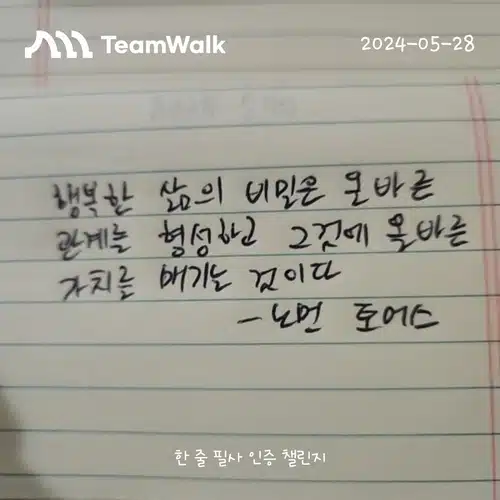 TeamWalk
2024-05-28
행복한 삶의 비밀은 올바른
관계를 형성하고 그것에 올바른
가치를 매기는 것이다
- 노먼 토머스
한 줄 필사 인증 챌린지